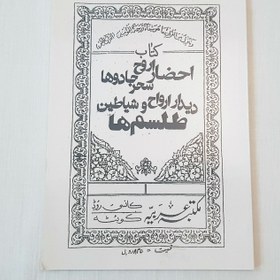 کتاب
احضار روح
سحر جادوها
دیدار ارواح و شیاطین
طلسم ها
مکتبه عربیه
کانسی روڈ
کوئٹہ